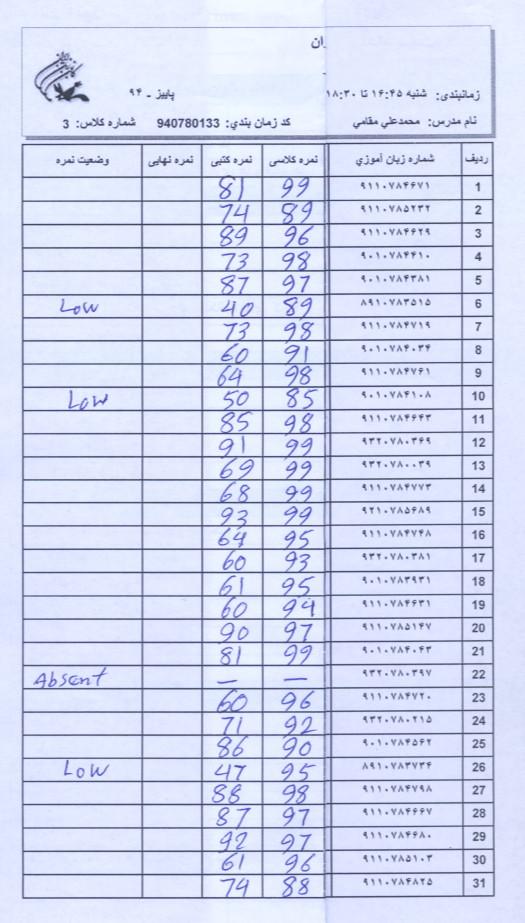 ان
زمانبندی: شنبه ۱۶:۴۵ تا ۱۸:۳۰ پاییز ـ ۹۴
نام مدرس: محمدعلي مقامي کد زمان بندي: 940780133 شماره کلاس: 3
ردیف شماره زبان آموزي نمره کلاسی نمره کتبی نمره نهایی وضعیت نمره
1 ۹۱۱۰۷۸۴۶۷۱ 99 81
2 ۹۱۱۰۷۸۵۲۳۲ 89 74
3 ۹۱۱۰۷۸۴۶۲۹ 96 89
4 ۹۰۱۰۷۸۴۴۱۰ 98 73
5 ۹۰۱۰۷۸۴۳۸۱ 97 87
6 ۸۹۱۰۷۸۳۵۱۵ 89 40 Low
7 ۹۱۱۰۷۸۴۷۱۹ 98 73
8 ۹۰۱۰۷۸۴۰۳۴ 91 60
9 ۹۱۱۰۷۸۴۷۶۱ 98 64
10 ۹۰۱۰۷۸۴۱۰۸ 85 50 Low
11 ۹۱۱۰۷۸۴۶۴۳ 98 85
12 ۹۳۲۰۷۸۰۳۶۹ 99 91
13 ۹۳۲۰۷۸۰۰۳۹ 99 69
14 ۹۱۱۰۷۸۴۷۷۳ 99 68
15 ۹۲۱۰۷۸۵۶۸۹ 99 93
16 ۹۱۱۰۷۸۴۷۴۸ 95 64
17 ۹۳۲۰۷۸۰۳۸۱ 93 60
18 ۹۰۱۰۷۸۳۹۳۱ 95 61
19 ۹۱۱۰۷۸۴۶۳۱ 94 60
20 ۹۱۱۰۷۸۵۱۴۷ 97 90
21 ۹۰۱۰۷۸۴۰۶۳ 99 81
22 ۹۳۲۰۷۸۰۳۹۷ — — Absent
23 ۹۱۱۰۷۸۴۷۲۰ 96 60
24 ۹۳۲۰۷۸۰۲۱۵ 92 71
25 ۹۰۱۰۷۸۴۵۶۲ 90 86
26 ۸۹۱۰۷۸۳۷۳۴ 95 47 Low
27 ۹۱۱۰۷۸۴۷۹۸ 98 88
28 ۹۱۱۰۷۸۴۶۶۷ 97 87
29 ۹۱۱۰۷۸۴۶۸۰ 97 92
30 ۹۱۱۰۷۸۵۱۰۳ 96 61
31 ۹۱۱۰۷۸۴۸۲۵ 88 74